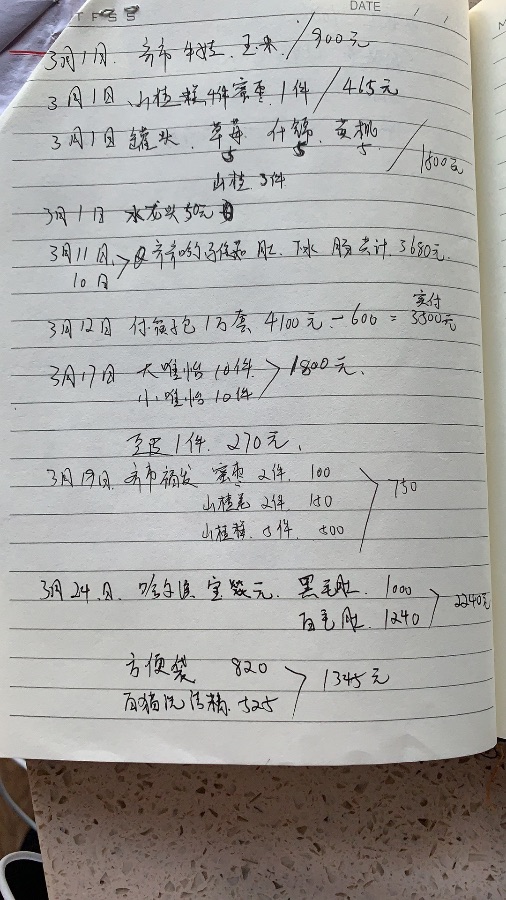 DATE / /
3月1日. 齐市 牛蛙. 玉米 / 900元
3月1日 山楂糕4件蜜枣 1件 / 465元
3月1日 罐头. 草莓 什锦. 黄桃
5 5 5 / 1500元
山楂 3件
3月1日 水龙头50元
3月11日. 齐齐哈 肚. 下水 肠 共计. 3680元.
10日
3月12日 付 包 1万套 4100元 - 600 = 实付 3500元
3月17日 大唯怡 10件 1800元.
小唯怡 10件
豆皮 1件. 270元.
3月19日. 齐市福发 蜜枣 2件. 100
山楂 2件 150 750
山楂糕. 5件 500
3月24日. 哈尔滨 元. 黑毛肚. 1000
百毛肚. 1240 2240元
方便袋 820 1345元
百猫洗洁精. 525